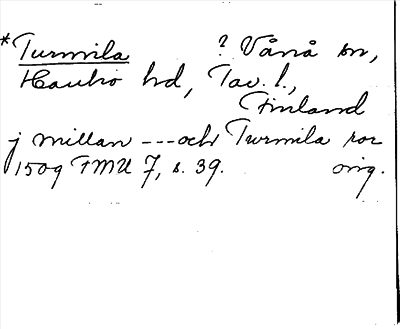 *Turmila ? Vånå sn,
Hauho hd, Tav. l.,
Finland
j millan --- och Turmila ror
1509 FMU 7, s. 39. orig.